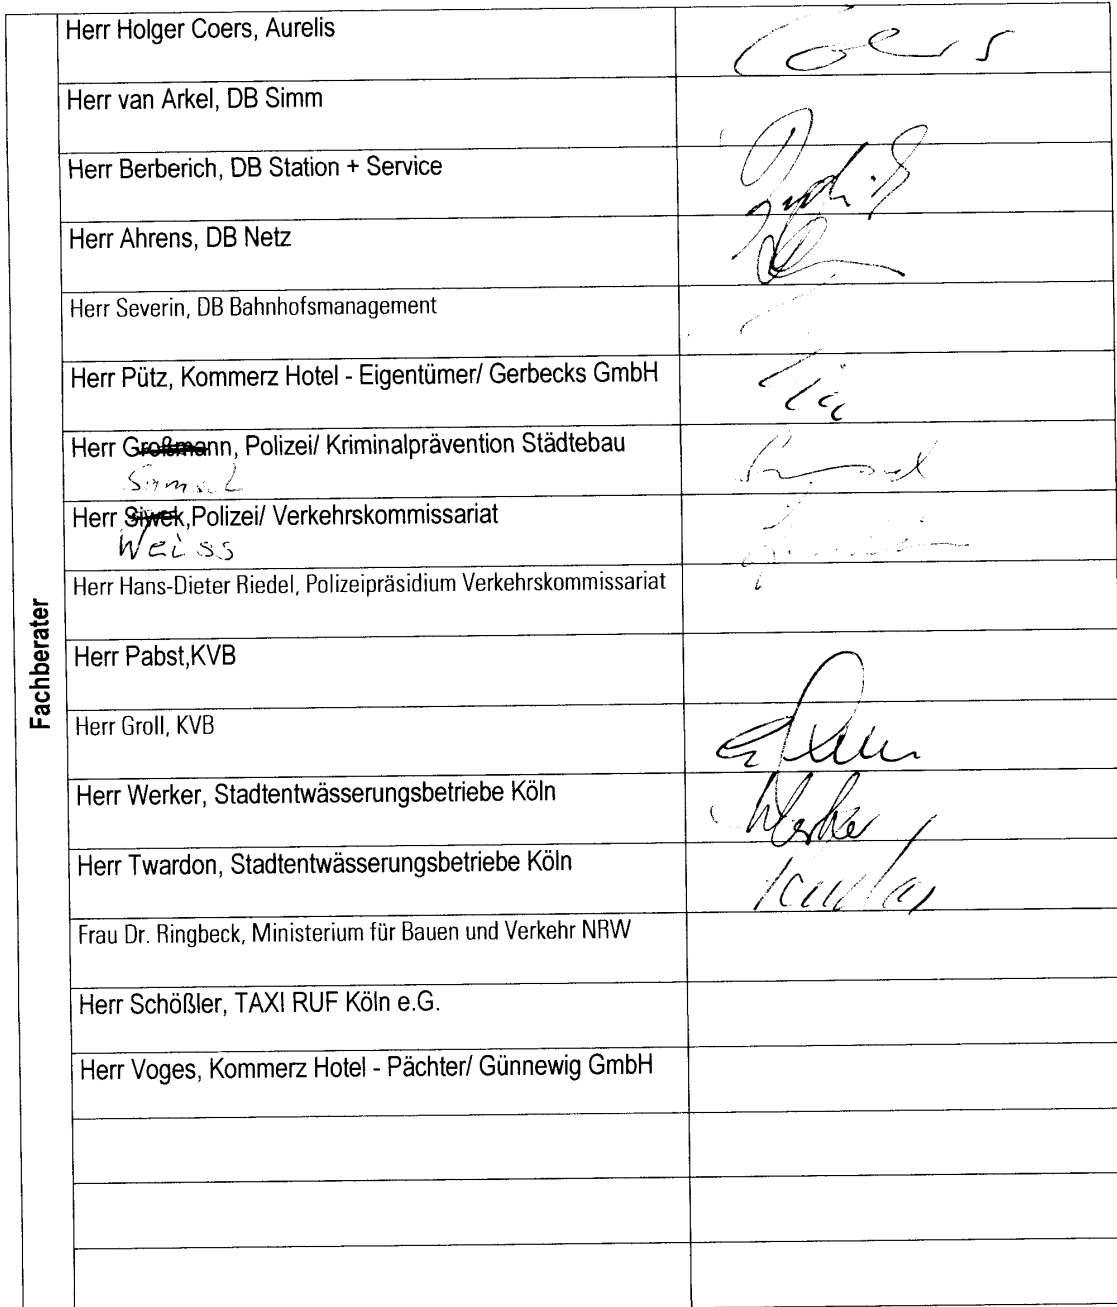 Fachberater
Herr Holger Coers, Aurelis
Coers
Herr van Arkel, DB Simm
Herr Berberich, DB Station + Service
Herr Ahrens, DB Netz
Herr Severin, DB Bahnhofsmanagement
Herr Pütz, Kommerz Hotel - Eigentümer/ Gerbecks GmbH
Herr Großmann, Polizei/ Kriminalprävention Städtebau
Herr Siwek,Polizei/ Verkehrskommissariat
Weiss
Herr Hans-Dieter Riedel, Polizeipräsidium Verkehrskommissariat
Herr Pabst,KVB
Herr Groll, KVB
Herr Werker, Stadtentwässerungsbetriebe Köln
Werker
Herr Twardon, Stadtentwässerungsbetriebe Köln
Frau Dr. Ringbeck, Ministerium für Bauen und Verkehr NRW
Herr Schößler, TAXI RUF Köln e.G.
Herr Voges, Kommerz Hotel - Pächter/ Günnewig GmbH